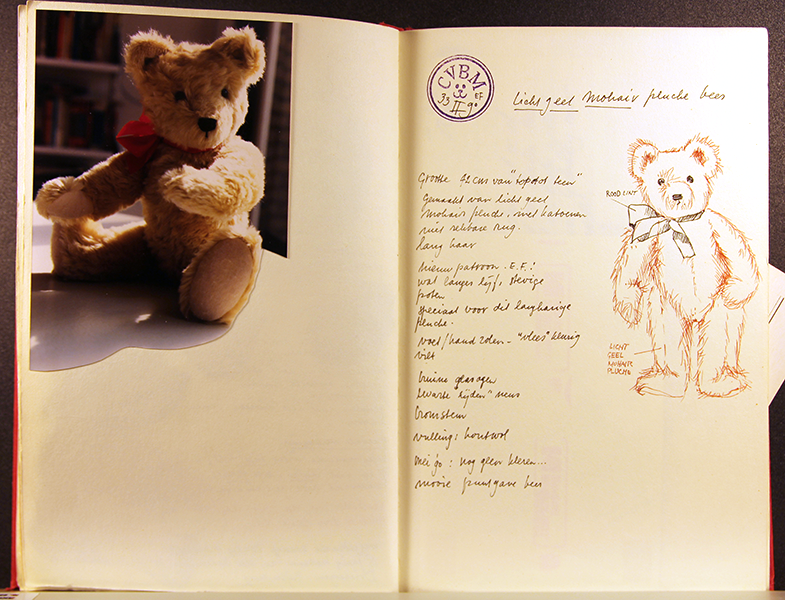 CVBM
33 EF
II-90
licht geel mohair pluche beer
Grootte 42 cms van "top tot teen"
Gemaakt van licht geel
mohair pluche, met katoenen
niet rekbare rug.
lang haar
nieuw patroon. E.F.:
wat langer lijf, stevige
poten.
speciaal voor dit langharige
pluche.
voet/hand zolen - "vlees" kleurig
vilt
bruine glasogen
zwarte zijden neus
bromstem
vulling: houtwol
mei '90: nog geen kleren...
mooie puntgave beer
ROOD LINT
LICHT
GEEL
MOHAIR
PLUCHE